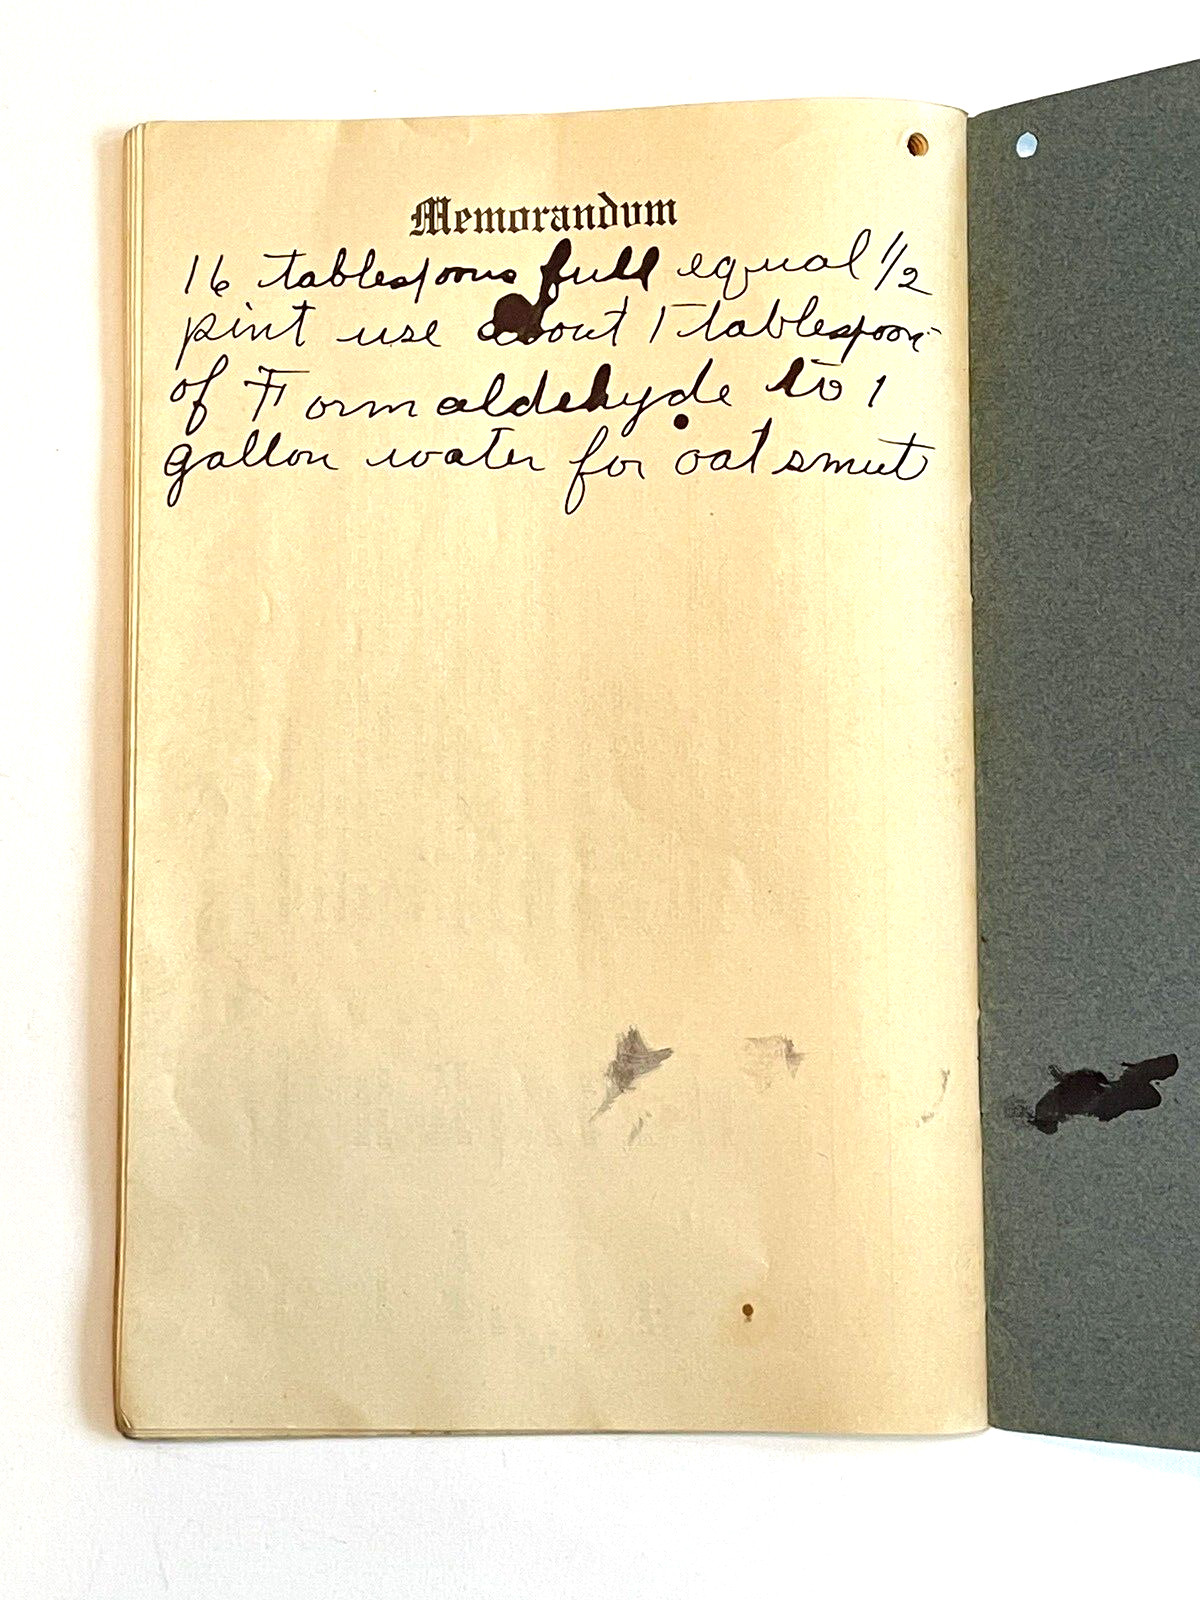 Memorandum
16 tablespoons full equal 1/2
pint use about 1 tablespoon
of Formaldehyde to 1
gallon water for oat smut